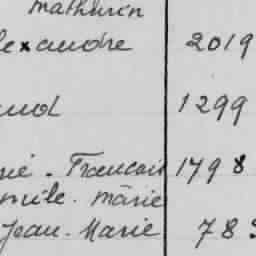 Mathurin
lexandre 2019
aud 1299
rié. Francois 1798
mile. marie
Jean. Marie 78